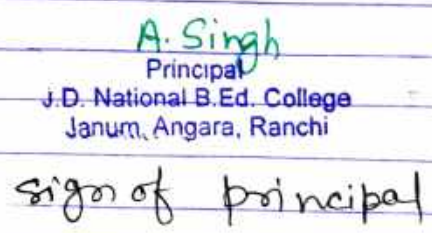 A. Singh
Principal
J.D. National B.Ed. College
Janum, Angara, Ranchi
sign of principal